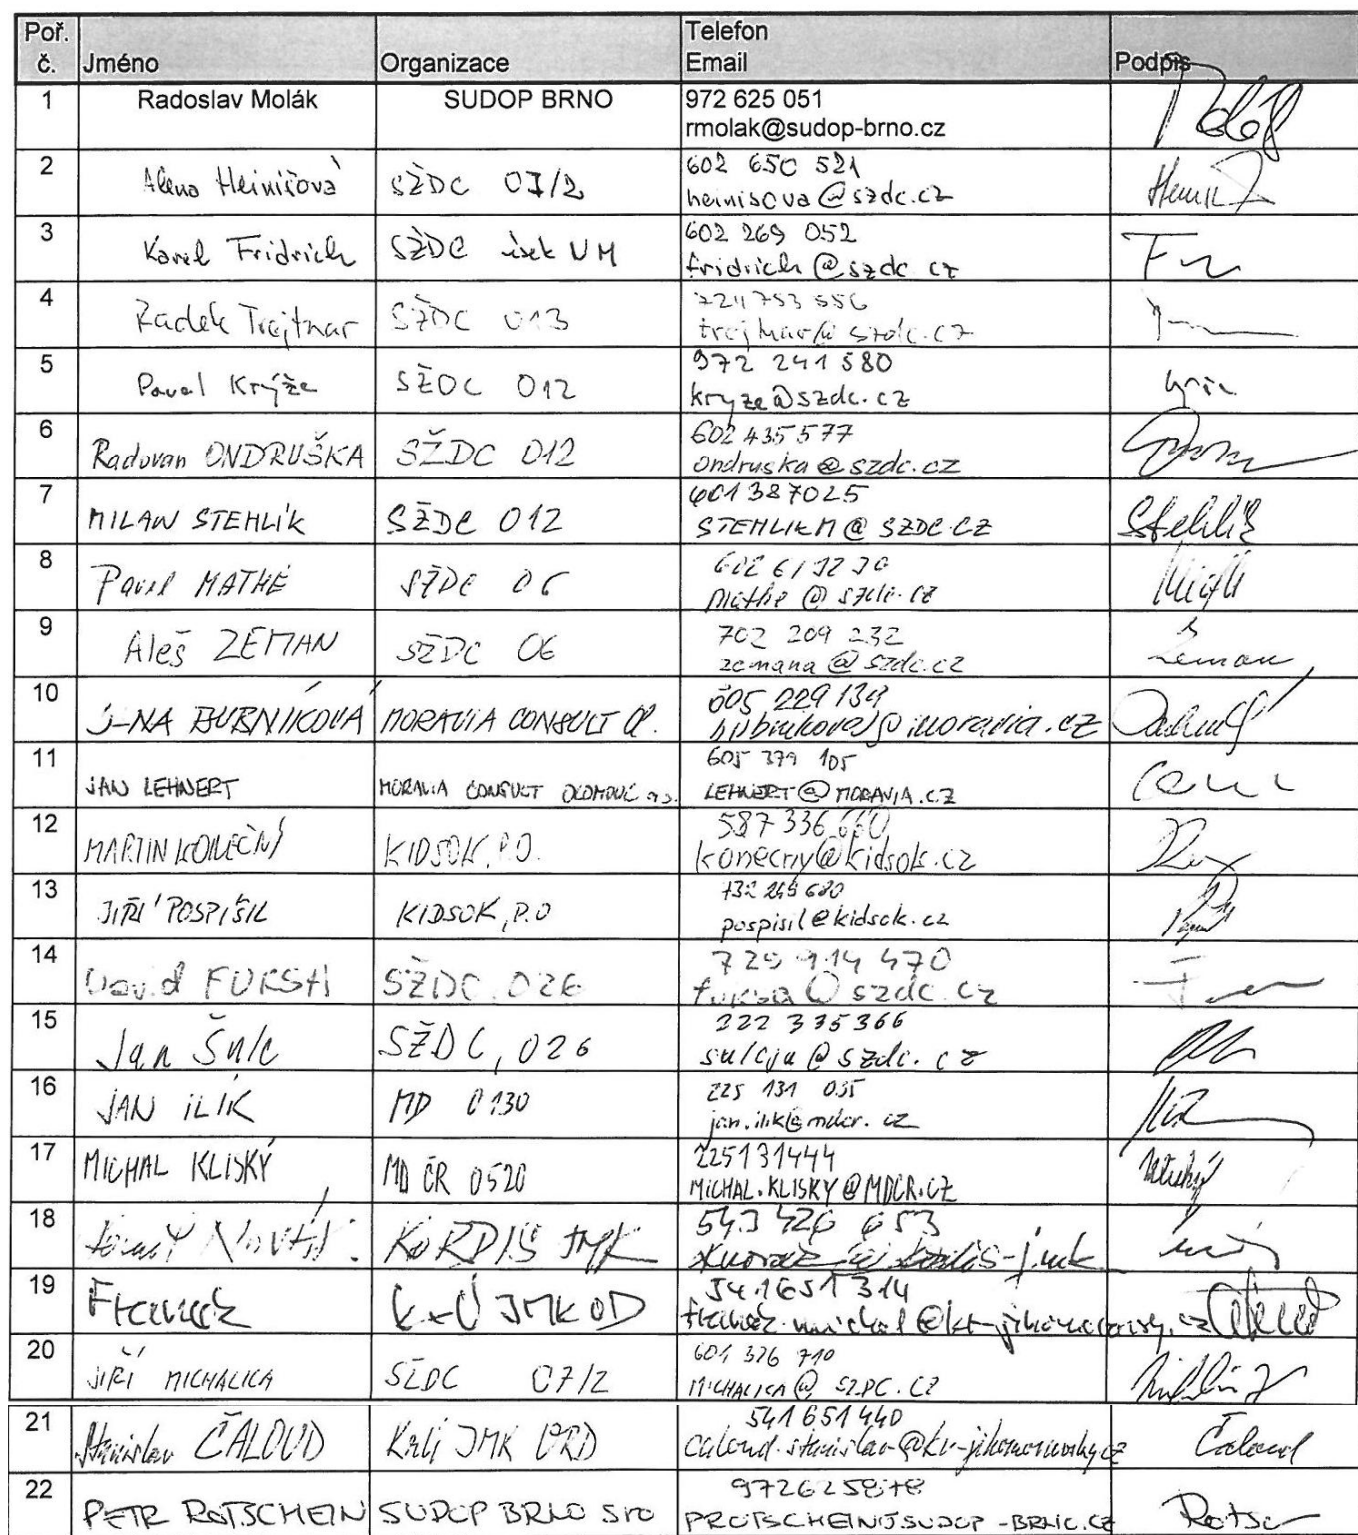 Poř. č. Jméno Organizace Telefon Email Podpis
1 Radoslav Molák SUDOP BRNO 972 625 051
rmolak@sudop-brno.cz
2 Alena Heinišová SŽDC 07/2 602 650 521
heinisova@szdc.cz
3 Karel Fridrich SŽDC úsek VM 602 269 052
fridrich@szdc.cz
4 Radek Trejtnar SŽDC 013
trejtnar@szdc.cz
5 Pavel Krýže SŽDC 012 972 241 580
kryze@szdc.cz
6 Radovan ONDRUŠKA SŽDC 012 602 435 577
ondruska@szdc.cz
7 MILAN STEHLÍK SŽDC 012 601 387025
STEHLIKM@SZDC.CZ Stehlík
8 Pavel MATHÉ SŽDC 06
mathe@szdc.cz
9 Aleš ZEMAN SŽDC 06 702 209 232
zemana@szdc.cz Zeman
10 BUBNÍKOVÁ MORAVIA CONSULT 605 229 134
11 JAN LEHNERT MORAVIA CONSULT OLOMOUC a.s. 605 379 105
LEHNERT@MORAVIA.CZ
12 MARTIN KONEČNÝ KIDSOK, P.O. 587 336 660
konecny@kidsok.cz
13 JIŘÍ POSPÍŠIL KIDSOK, P.O
pospisil@kidsok.cz
14 David FUKSA SŽDC, 026 725 914 470
fuksa@szdc.cz
15 Jan Šulc SŽDC, 026 222 335366
sulcja@szdc.cz
16 JAN ILÍK MD 0130 225 131 035
jan.ilik@mdcr.cz
17 MICHAL KLISKÝ MD ČR 0520 225131444
MICHAL.KLISKY@MDCR.CZ
18 NOVÁK KORDIS JMK 543 426 653
19 JMK OD 541651314
20 JIŘÍ MICHALICA SŽDC 07/2 601 376 710
MICHALICA@SZDC.CZ
21 Stanislav ČALOUD JMK 541651440
caloud.stanislav@kr-jihomoravsky.cz Čaloud
22 PETR ROTSCHEIN SUDOP BRNO sro 972625878